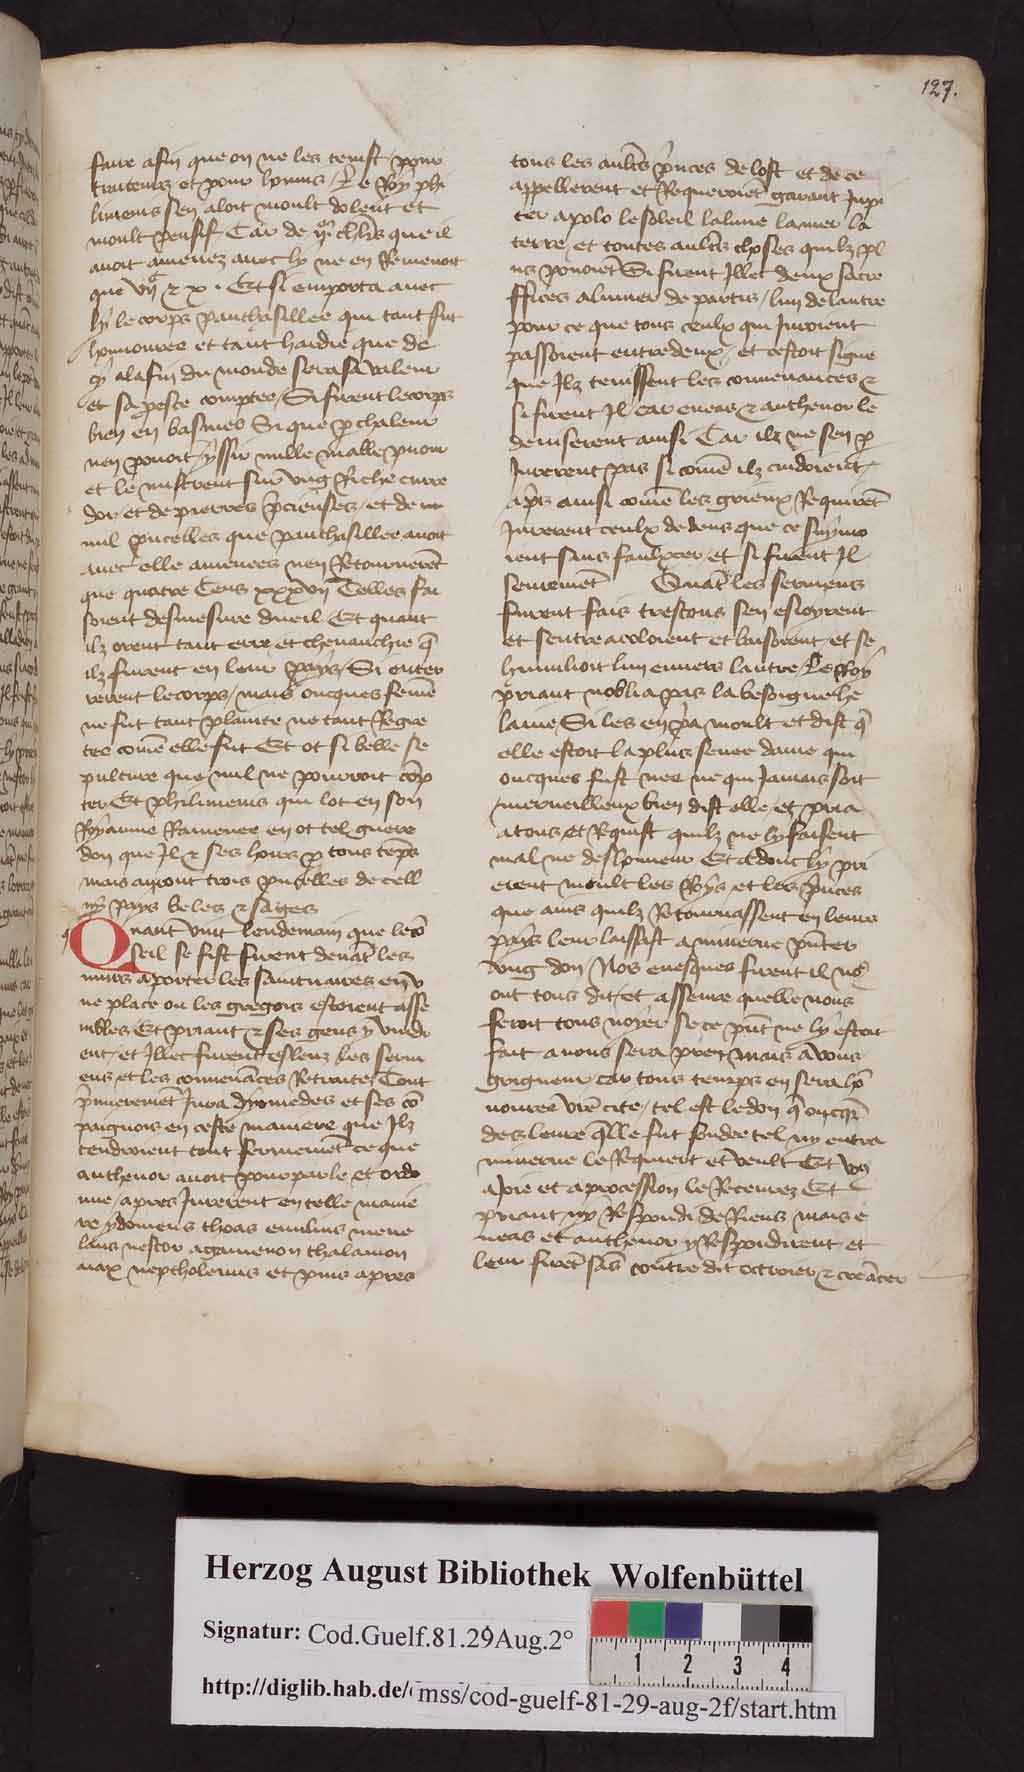 127.
faire afin que on ne les tenist pour
traiteurs et pour homs / Le Roy phi
limenis sen aloit moult dolent et
moult pensif Car de chlrs que il
auoit amenez auec ly ne en Remenoit
que et x. Et si emporta auec
ly le corps panthasillee qui tant fut
honnouree et tant hardie que de
cy alafin du monde sera sa valeur
et sa peste comptee / Si furent le corps
bien en basmes Si que p chaleur
nen pouoit yssir nulle malle punour
et le mistrent sur vng Riche curre
dor et de pierres pcieuses / et de
mil pucelles que panthasillee auoit
auec elle amenees nen Retournerēt
que quatre Cens xxxvii Celles fai
soient desmesure dueil Et quant
ilz orent tant erre et cheuauchie q̄
ilz furent en leur pays / Si enter
rerent le corps / mais oncques femē
ne fut tant plainte ne tant Regre
tee comē elle fut Et ot si belle se
pulture que nul ne pourroit cōp
ter Et philimenis qui lot en son
Royaume Ramenee en ot tel guere
don que Il et ses hoirs p tous tēps
mais auront trois pucelles de cell
uy pays beles et sages
Quant vint lendemain que le cō
seil se fist furent deuāt les
murs aporter les saintuaires en v
ne place ou les gregois estoient asse
mbles Et priant et ses gens y vindr
ent / et Illec furent esleuz les serm
ens et les conuenāces Retraite Tout
pmieremēt Iura dyomedes et ses cō
paignons en ceste maniere que Ilz
tendroient tout fermemēt ce que
anthenor auoit pourparle et ordo
nne / apres Iurerent en telle manie
re ydomens thoas emilius mene
laus nestor agamenon thalamon
aiax neptholemus et puis apres
tous les autrēs prīces de lost et de ce
appellerent et Requeroiēt garant Iupi
ter apolo le soleil la lune la mer la
terre / et toutes autrēs choses quilz pl
us pouoiēt Si firent Illec deux sacre
ffices alumer de partis / lun de lautre
pour ce que tous ceulx qui Iuroient
passoient entredeux / et cestoit signe
que Ilz tenissent les conuenances et
si firent Il Car eneas et anthenor le
deuiserent ainsi Car ilz ne sen p
Iurerent pas si comē ilz cuidoient /
aprēs ainsi comē les grieux Requirēt
Iurerent ceulx de dens que ce suymo
ient sans faulxer et si firent Il
seuremēt Quāt les sermens
furent fais trestous sen esioyrent
et sentre acoloient et baisoient et se
humilioit lun enuers lautre / Le Roy
priant noblia pas la besoigne he
laine Si les en pria moult et dist q̄
elle estoit la plus senee dame qui
oncques fust nee ne qui Iamais soit
merueilleux bien dist elle / et pria
atous et Requist quilz ne ly faisent
mal ne deshonneur Et adonc ly pri
erent moult les Roys et les prīces
que ains quilz Retournassent en leurs
pays leur laissist a minerue pūter
vng don Nos euesques furent il nō
ont tous dit / et asseure quelle nous
feroit tous noyer se ce pūt ne ly estoit
fait a nous sera prez mais a vous
grigneur car tous temps en sera hō
nouree vrē cite / tel est le don q̄ oncqz
des leure q̄lle fut fondee tel ny entra
minerue le Requiert et veult Et vō
a Ioie et aprocession le Receurez Et
priant ny Respondi de Riens mais e
neas et anthenor y Respondirent et
leur firēt sās contredit octroier et creācer
Herzog August Bibliothek Wolfenbüttel
Signatur: Cod.Guelf.81.29Aug.2°
http://diglib.hab.de/mss/cod-guelf-81-29-aug-2f/start.htm
1 2 3 4